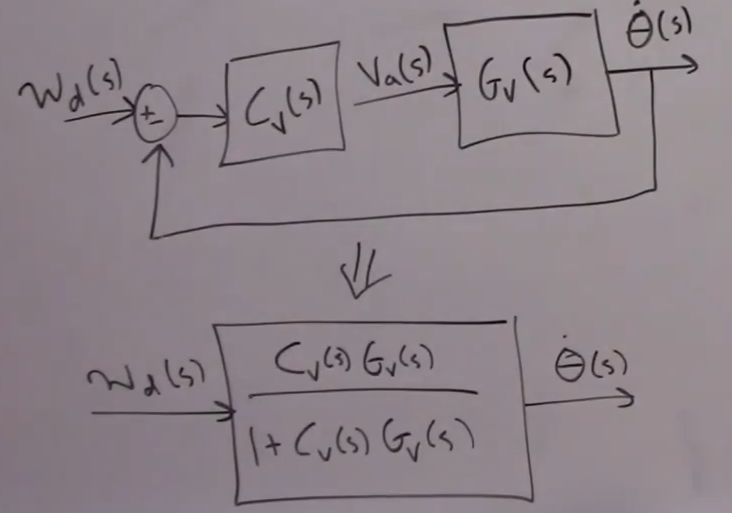 W_d(s) ± C_v(s) V_a(s) G_v(s) θ̇(s)
⇓
W_d(s) C_v(s) G_v(s) θ̇(s)
1 + C_v(s) G_v(s)